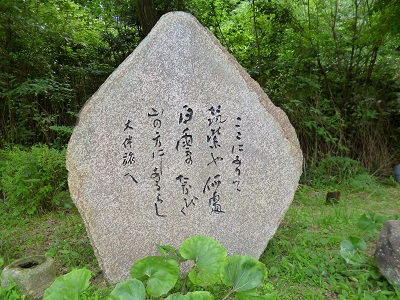 ここにありて
筑紫や何處
白雲の たなびく
山の方にしあるらし
大伴旅人